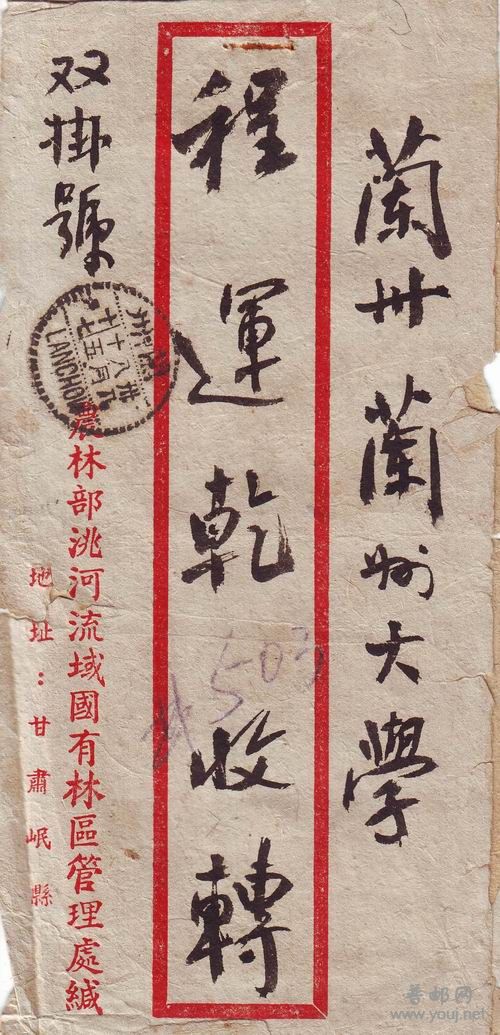 蘭卅蘭州大學
程運乾收轉
双掛號
農林部洮河流域國有林區管理處緘
地址：甘肅岷縣
LANCHOW
503
普邮网
www.youj.net